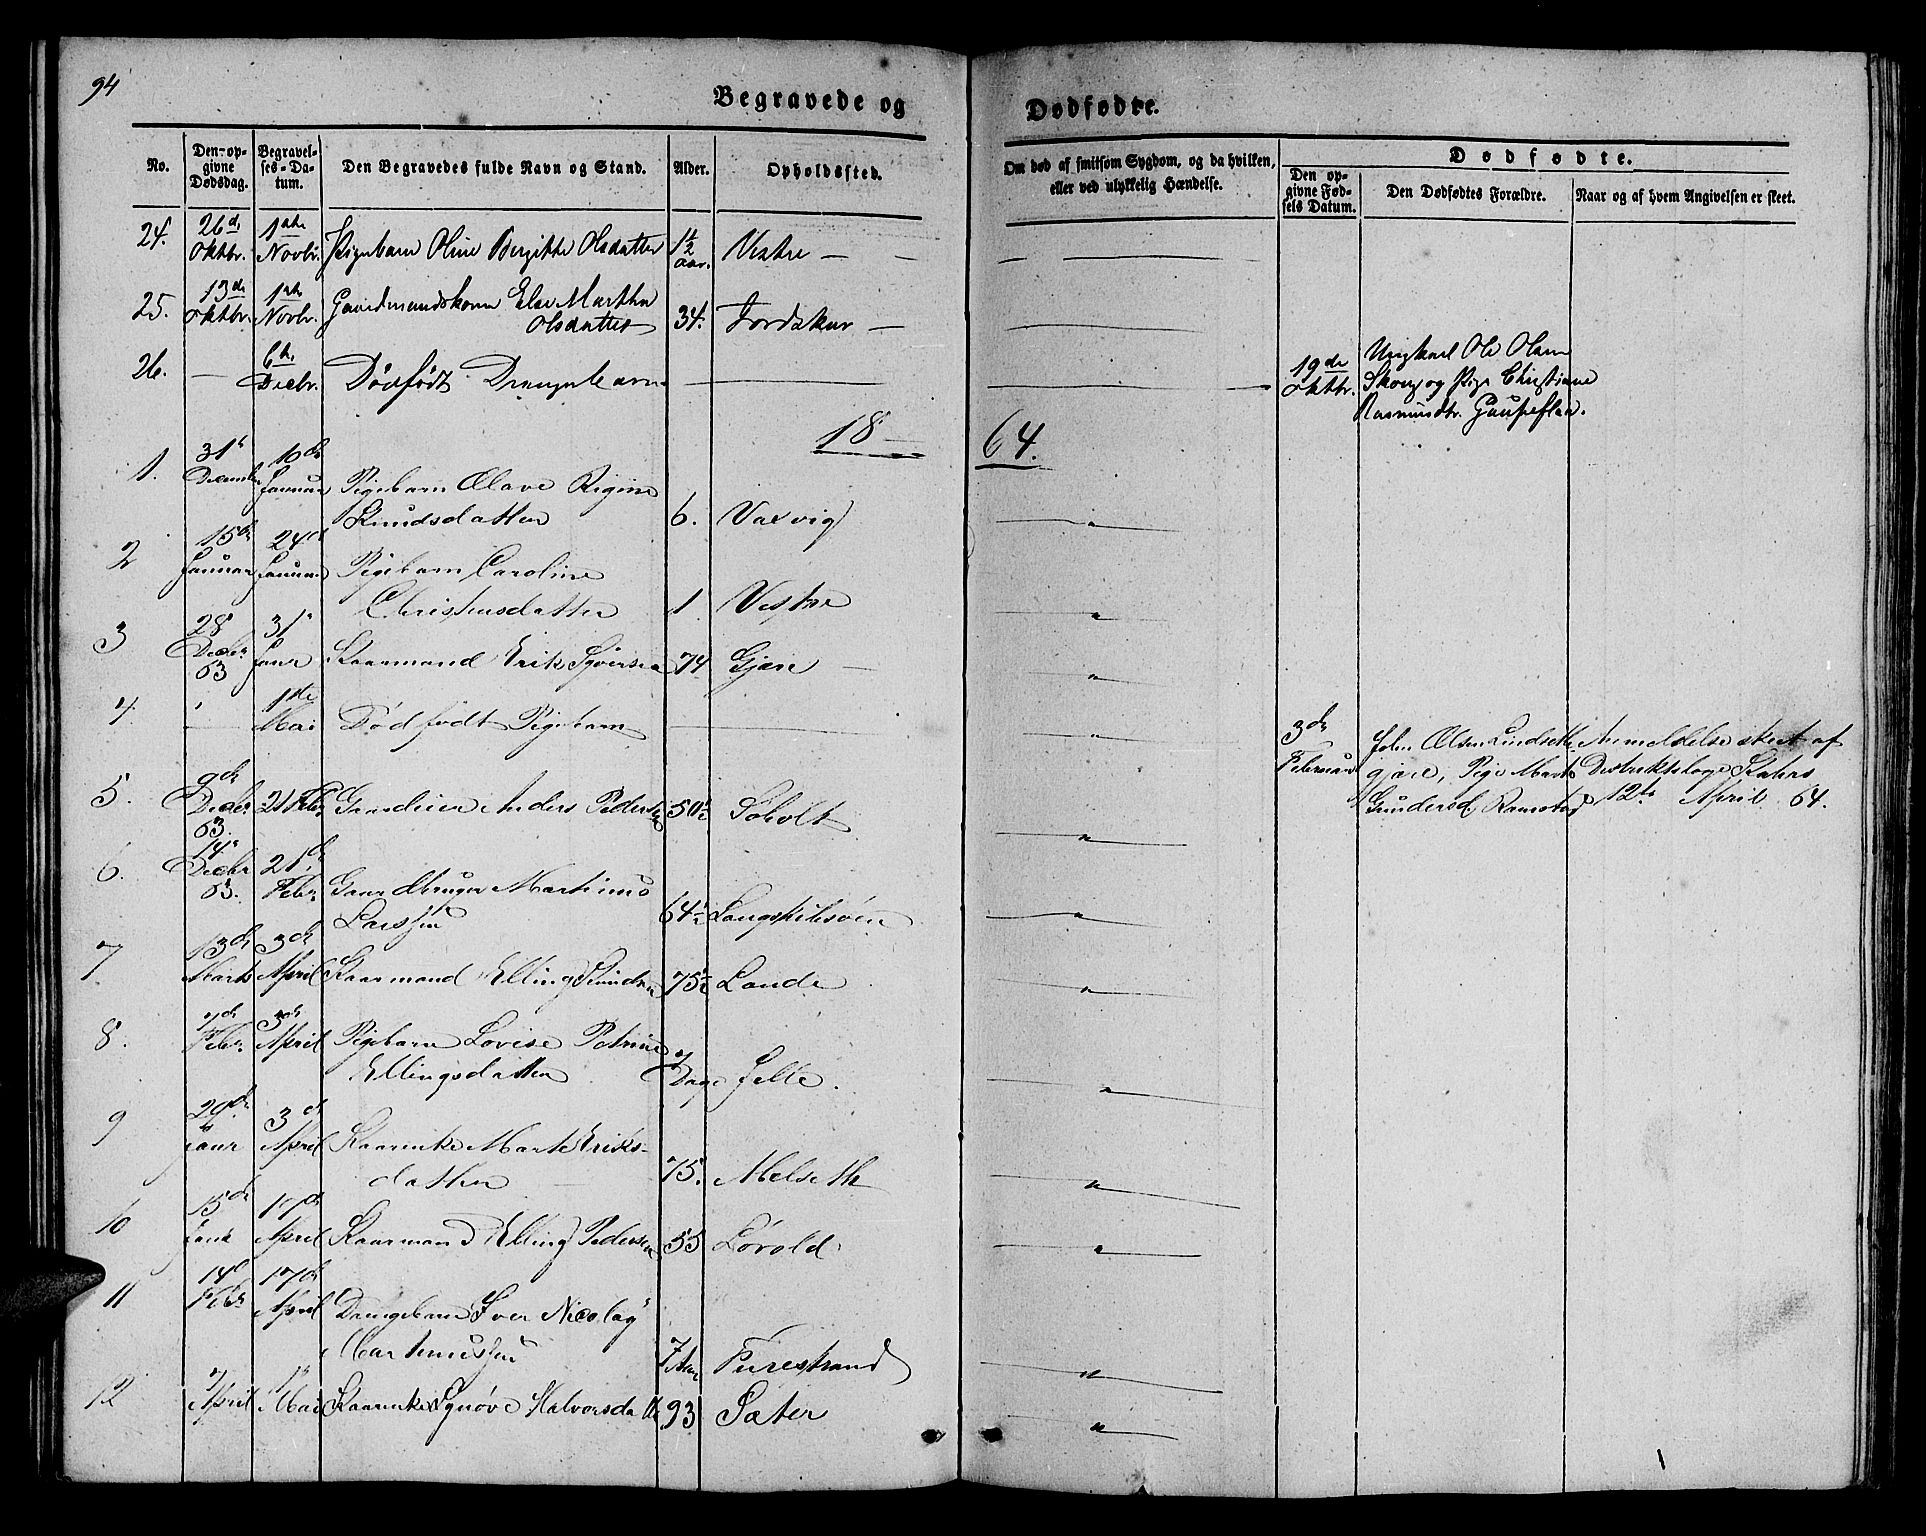 94
Begravede og
Dødfødte.
No.
Den opgivne Dødsdag.
Begravelses-Datum.
Den Begravedes fulde Navn og Stand.
Alder.
Opholdssted.
Om død af smitsom Sygdom, og da hvilken,
eller ved ulykkelig Hændelse.
Dødfødte.
Den opgivne Fødsels Datum.
Den Dødfødtes Forældre.
Naar og af hvem Angivelsen er skeet.
24. 26de Oktbr. 1ste Novbr. Pigebarn Oline Bergitte Olsdatter 1½ aar. Vestre — —
25. 13de Oktbr. 1ste Novbr. Gaardmandskone Else Martha
Olsdatter 34. Jordskar —
26. — 6te Decbr. Dødfødt Drengebarn — —
19de Oktbr. Ungkarl Ole Olsen
Skorge og Pige Christiane
Rasmusdtr. Gausneflaa.
18 — 64.
1. 31te December 10de Januar Pigebarn Olave Regine
Knudsdatter 6. Vaxvig "
2 15de Januar 24de Januar Pigebarn Caroline
Christensdatter 1 Vestre "
3 28 Decbr 63 31te Janr Kaarmand Erik Sjversen 74 Gjære — "
4. — 1ste Mai Dødfødt Pigebarn — "
3de Februar John Olsen Lindseth
gjære, Pige Marte
Gundersd Ramstad
Anmeldelse skeet af
Distriktslæge Krahs
12te April 64.
5. 9de Decbr 63. 21 Febr. Gaardeier Anders Pedersen 50½ Søholt "
6. 14de Decbr 63. 21de Febr Gaardbruger Martinus
Larssen 64½ Langskibsøen "
7 13de Marts 3de April Kaarmand Elling Knudsen 75½ Lande "
8. 7de Febr. 3de April Pigebarn Lovise Petrine
Ellingsdatter Dage Jelle. "
9 29de Janr 3de April Kaarenke Marte Eriks-
datter 75. Melseth "
10 15de Janr 17de April Kaarmand Elling Pedersen 55 Løvold "
11 14de Febr 17de April Drengebarn Iver Nicolay
Martinussen 7 Aar Furestrand "
12 7 April 1ste Mai Kaarenke Synøve Halvorsdatter 93 Sæter "